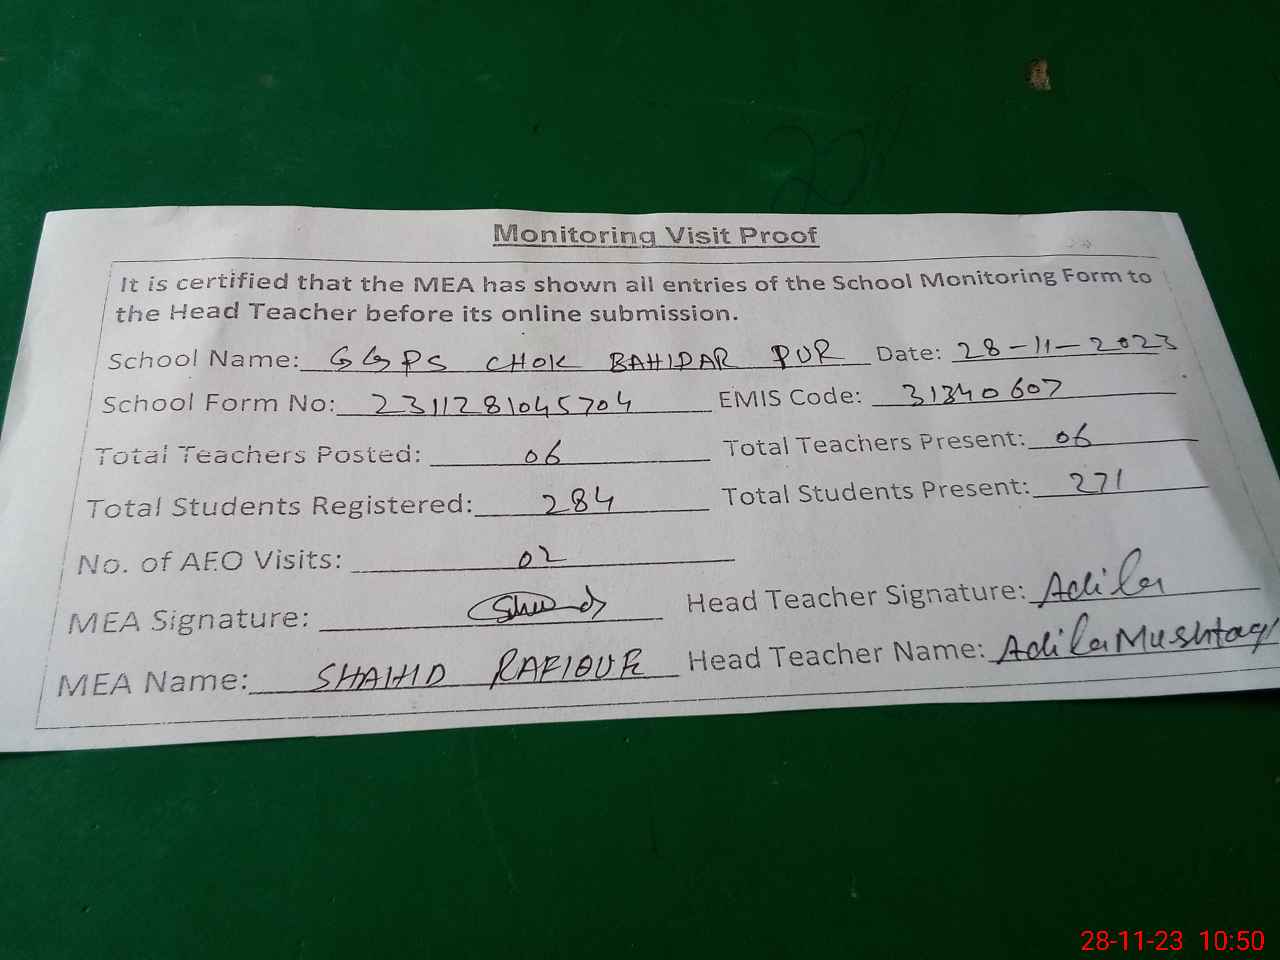 Monitoring Visit Proof
It is certified that the MEA has shown all entries of the School Monitoring Form to
the Head Teacher before its online submission.
School Name: GGPS CHOK BAHIDAR PUR Date: 28-11-2023
School Form No: 2311281045704 EMIS Code: 31340607
Total Teachers Posted: 06 Total Teachers Present: 06
Total Students Registered: 284 Total Students Present: 271
No. of AEO Visits: 02
MEA Signature: Head Teacher Signature: Adila
MEA Name: SHAHID Head Teacher Name: Adila Mushtaq
28-11-23 10:50